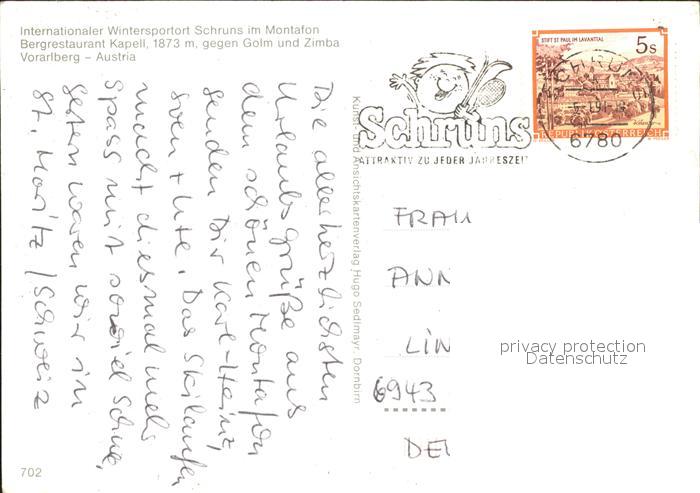 Internationaler Wintersportort Schruns im Montafon
Bergrestaurant Kapell, 1873 m, gegen Golm und Zimba
Vorarlberg – Austria
Die allerherzlichsten
Urlaubsgrüße aus
dem schönen Montafon
senden Dir Karl-Heinz,
Sven + Ute. Das Skilaufen
macht diesmal mehr
Spass mit soviel Schnee,
gestern waren wir in
St. Moritz / Schweiz
702
Kunst- und Ansichtskartenverlag Hugo Sedlmayr, Dornbirn
Schruns
ATTRAKTIV ZU JEDER JAHRESZEIT
STIFT ST. PAUL IM LAVANTTAL
5s
REPUBLIK ÖSTERREICH
SCHRUNS
6780
FRAU
ANN
LIN
6943
DEI
privacy protection
Datenschutz